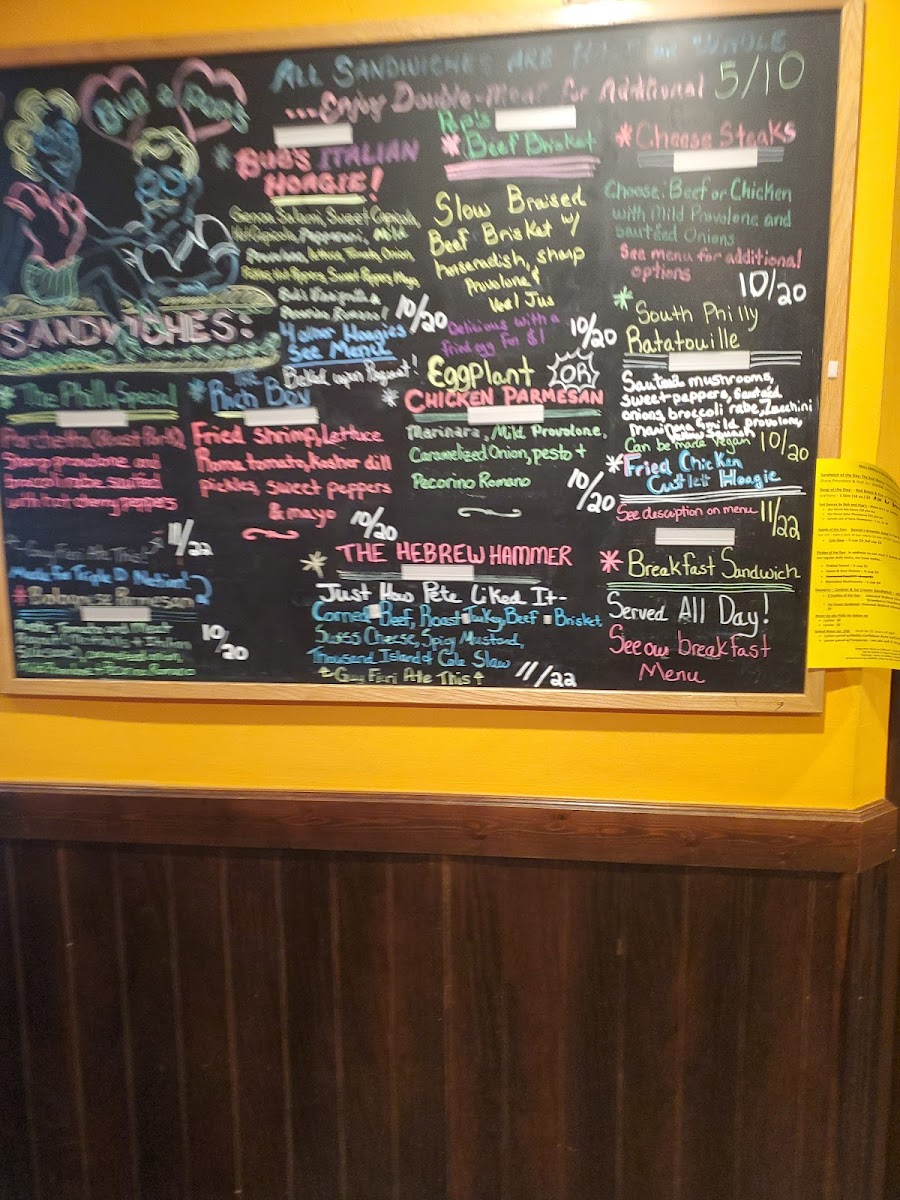 ALL SANDWICHES ARE HALF OR WHOLE
...Enjoy Double-Meat for Additional 5/10
BUB & POPS
SANDWICHES:
* BUB'S ITALIAN
HOAGIE!
Genoa Salami, Sweet Capicola,
Hot Capicola, Pepperoni, Mild
Provolone, Lettuce, Tomato, Onion,
Pickles, Hot Peppers, Sweet Peppers, Mayo,
Bub's Vinaigrette &
Pecorino Romano!
10/20
4 other Hoagies
See Menu!
Baked upon Request!
Pop's
* Beef Brisket
Slow Braised
Beef Brisket w/
horseradish, sharp
Provolone &
Veal Jus
Delicious with a
fried egg for $1
10/20
* Cheese Steaks
Choose: Beef or Chicken
with Mild Provolone and
sautéed Onions
See menu for additional
options
10/20
* South Philly
Ratatouille
Sauteed mushrooms,
sweet peppers, sauteed
onions, broccoli rabe, Zucchini
marinara, mild provolone,
Can be made Vegan
10/20
* The Philly Special
Porchetta (Roast Pork),
Sharp provolone and
broccoli rabe sautéed
with hot cherry peppers
11/22
Guy Fieri Ate This
* Rich Boy
Fried shrimp, lettuce
Roma tomato, kosher dill
pickles, sweet peppers
& mayo
10/20
Eggplant OR
* CHICKEN PARMESAN
Marinara, Mild Provolone,
Caramelized Onion, pesto +
Pecorino Romano
10/20
* Fried Chicken
Cutlet Hoagie
See description on menu
11/22
Made for Triple D Nation!
* Bolognese Parmesan
10/20
* THE HEBREW HAMMER
Just How Pete Liked It-
Corned Beef, Roast Turkey, Beef Brisket
Swiss Cheese, Spicy Mustard,
Thousand Island & Cole Slaw
Guy Fieri Ate This
11/22
* Breakfast Sandwich
Served All Day!
See our breakfast
Menu